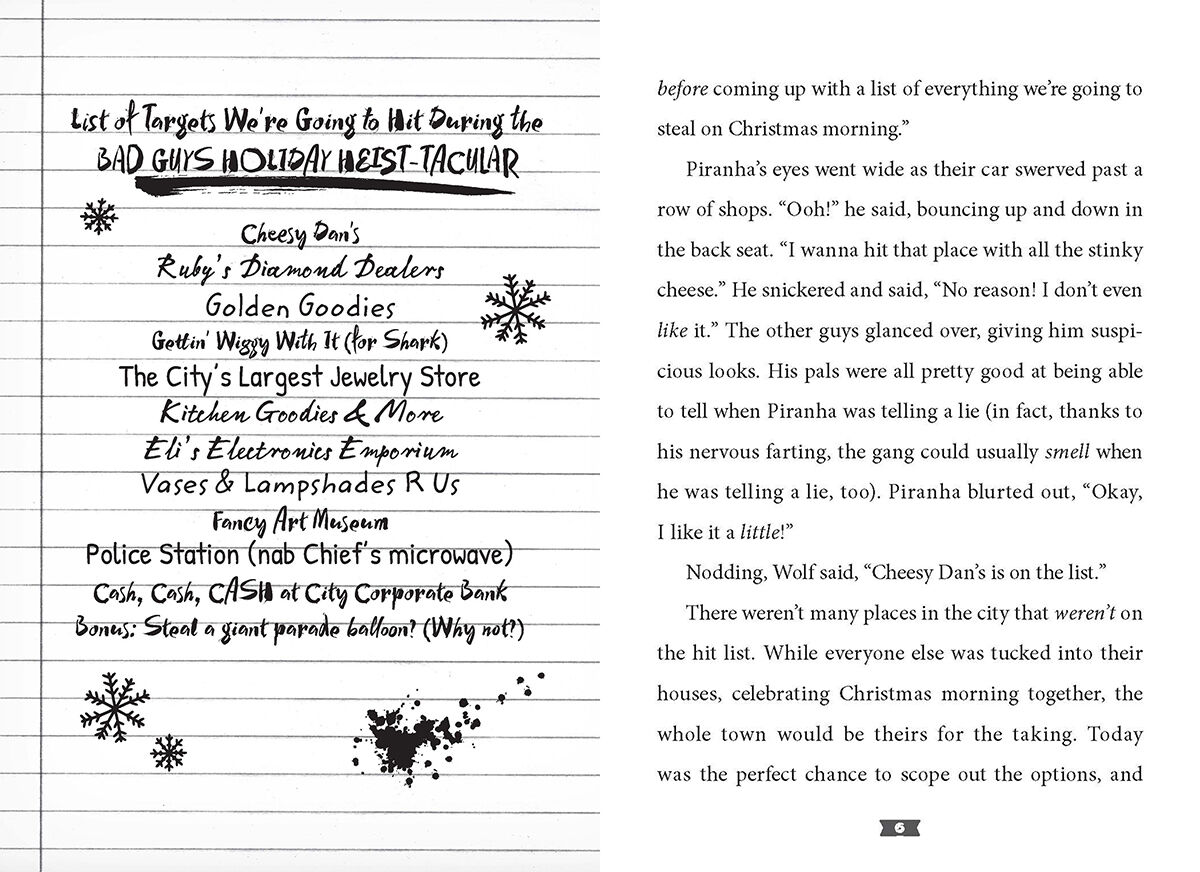 List of Targets We're Going to Hit During the
BAD GUYS HOLIDAY HEIST-TACULAR
Cheesy Dan's
Ruby's Diamond Dealers
Golden Goodies
Gettin' Wiggy With It (for Shark)
The City's Largest Jewelry Store
Kitchen Goodies & More
Eli's Electronics Emporium
Vases & Lampshades R Us
Fancy Art Museum
Police Station (nab Chief's microwave)
Cash, Cash, CASH at City Corporate Bank
Bonus: Steal a giant parade balloon? (Why not?)
before coming up with a list of everything we're going to
steal on Christmas morning.”
Piranha's eyes went wide as their car swerved past a
row of shops. “Ooh!” he said, bouncing up and down in
the back seat. “I wanna hit that place with all the stinky
cheese.” He snickered and said, “No reason! I don't even
like it.” The other guys glanced over, giving him suspi-
cious looks. His pals were all pretty good at being able
to tell when Piranha was telling a lie (in fact, thanks to
his nervous farting, the gang could usually smell when
he was telling a lie, too). Piranha blurted out, “Okay,
I like it a little!”
Nodding, Wolf said, “Cheesy Dan's is on the list.”
There weren't many places in the city that weren't on
the hit list. While everyone else was tucked into their
houses, celebrating Christmas morning together, the
whole town would be theirs for the taking. Today
was the perfect chance to scope out the options, and
6